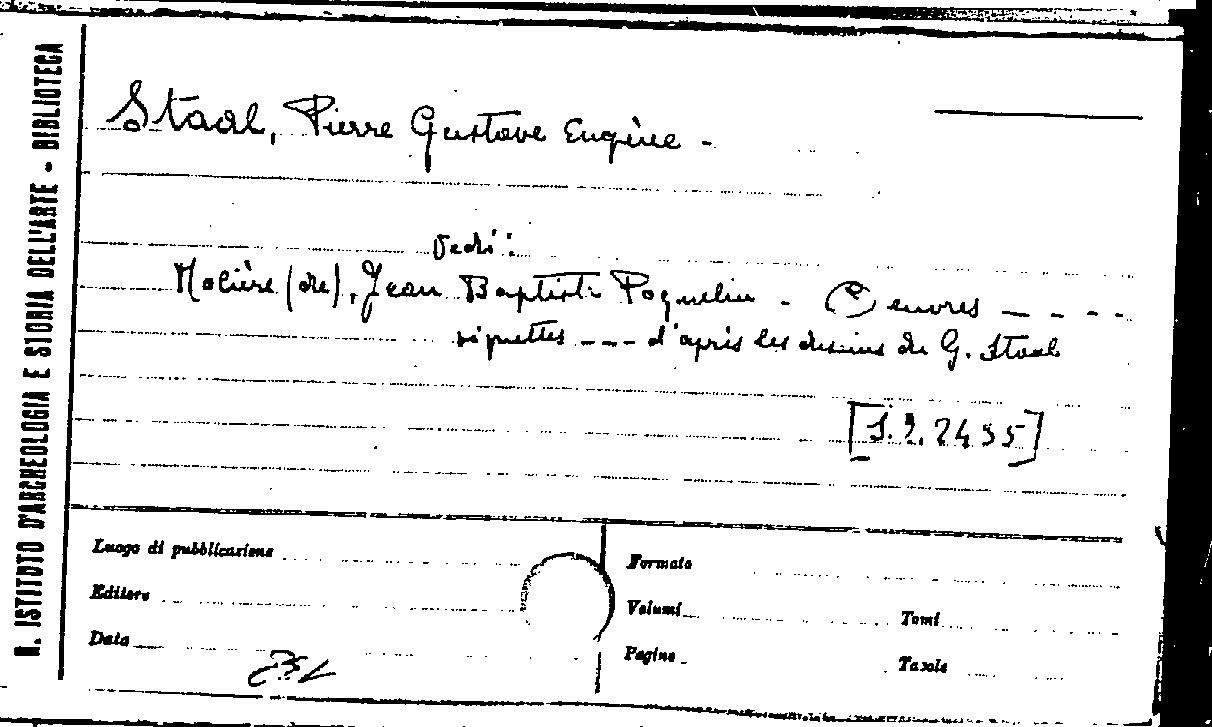 R. ISTITUTO D'ARCHEOLOGIA E STORIA DELL'ARTE - BIBLIOTECA
Staal, Pierre Gustave Eugène -
Vedi:
Molière (de), Jean Baptiste Poquelin - Oeuvres - - - -
vignettes --- d'après les dessins de G. Staal
Luogo di pubblicazione
Editore
Data
Formato
Volumi Tomi
Pagine Tavole